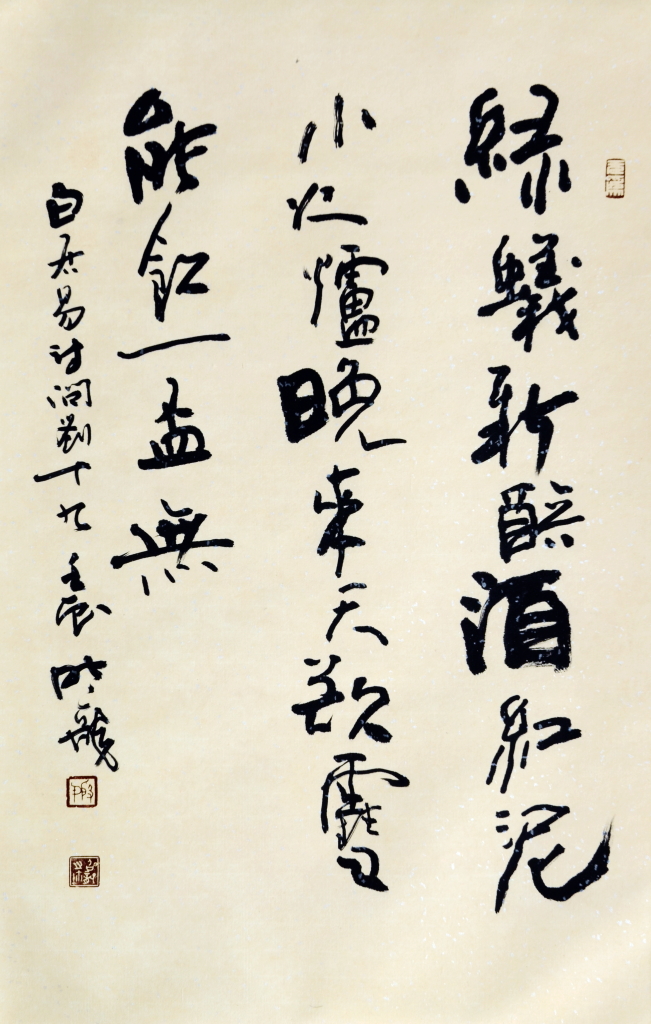 綠蟻新醅酒紅泥
小火爐晚來天欲雪
能飲一盃無
白居易詩問劉十九 壬辰